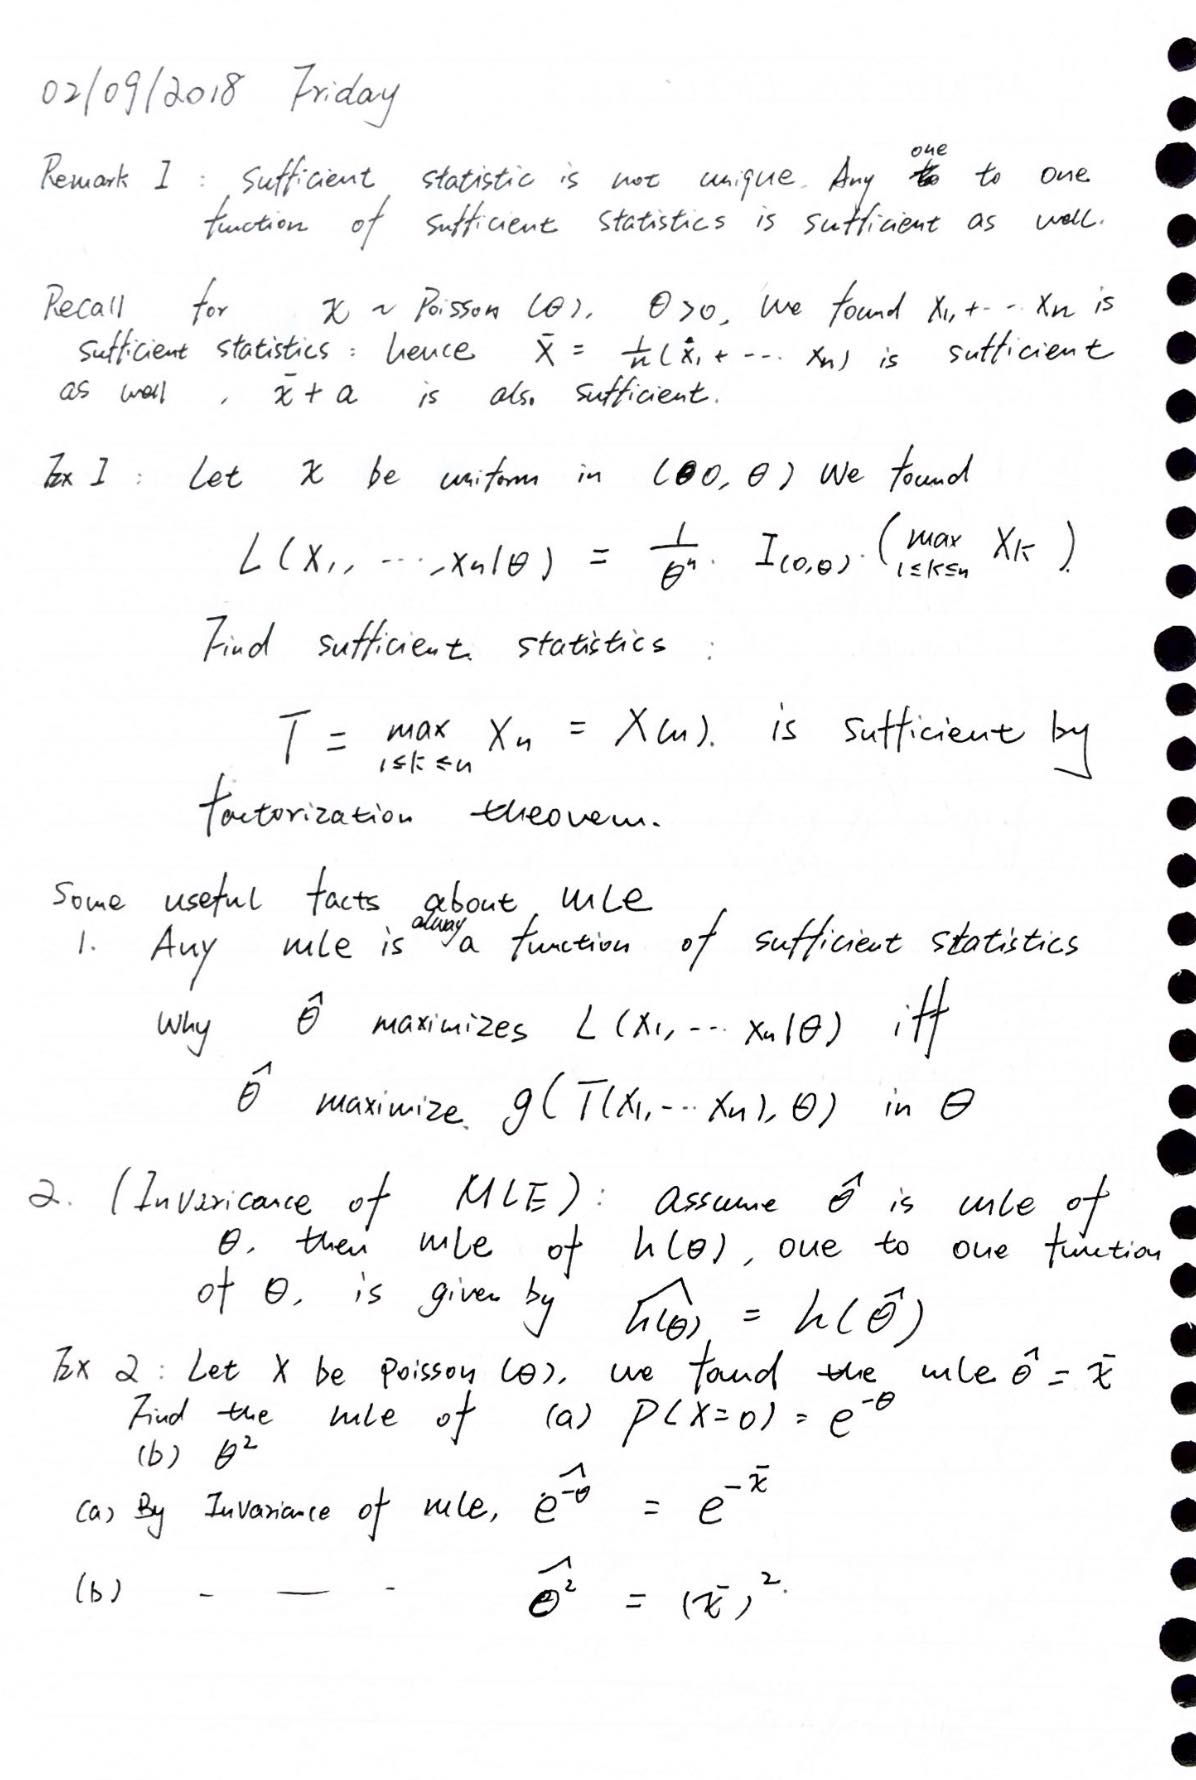 02/09/2018 Friday
Remark I : Sufficient statistic is not unique. Any one to one
function of sufficient statistics is sufficient as well.
Recall for x ~ Poisson (θ), θ>0, We found X₁, + - - Xn is
sufficient statistics : hence X̄ = 1/n (X₁ + --- Xn) is sufficient
as well, x̄ + a is also sufficient.
Ex I : Let x be uniform in (0, θ) We found
L(X₁, ---, Xn|θ) = 1/θⁿ · I(0,θ) · (max 1≤k≤n Xk)
Find sufficient statistics :
T = max 1≤k≤n Xn = X(n). is sufficient by
factorization theorem.
Some useful facts about mle
1. Any mle is alway a function of sufficient statistics
Why θ̂ maximizes L(X₁, --- Xn|θ) iff
θ̂ maximize g(T(X₁, --- Xn), θ) in θ
2. (Invaricance of MLE) : assume θ̂ is mle of
θ, then mle of h(θ), one to one function
of θ, is given by ĥ(θ) = h(θ̂)
Ex 2 : Let X be poisson (θ), we found the mle θ̂ = x̄
Find the mle of (a) P(X=0) = e^-θ
(b) θ²
(a) By Invariance of mle, ê^-θ = e^-x̄
(b) - — - θ̂² = (x̄)².